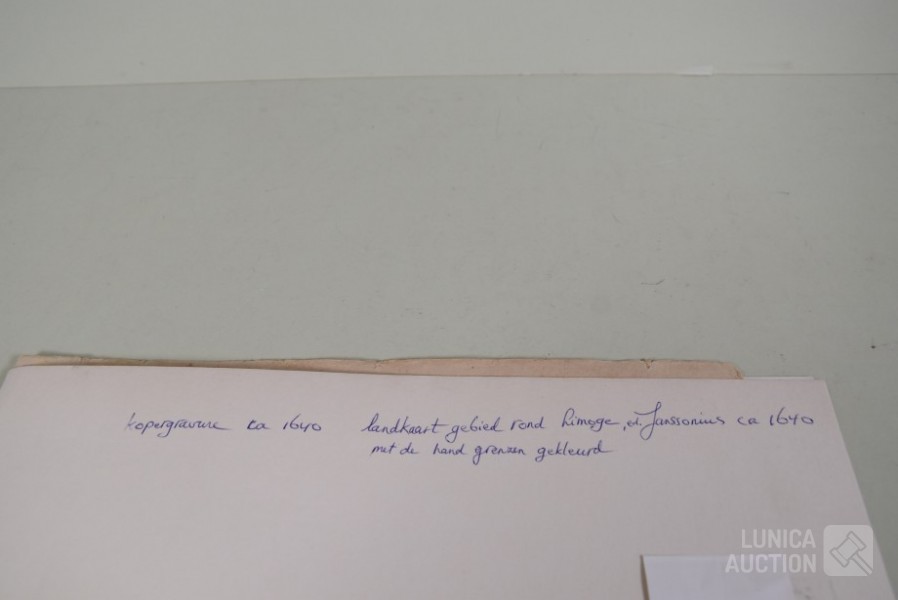 kopergravure ca 1640 landkaart gebied rond Limoge, ed. Janssonius ca 1640
met de hand grenzen gekleurd
LUNICA
AUCTION